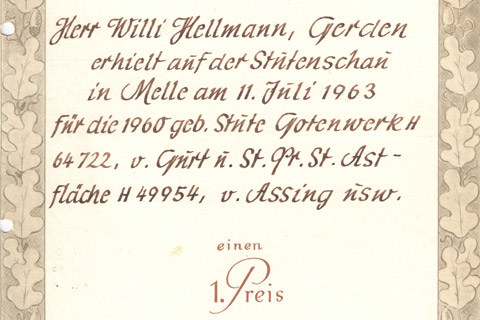 Herr Willi Hellmann, Gerden
erhielt auf der Stutenschau
in Melle am 11. Juli 1963
für die 1960 geb. Stute Gotenwerk H
64722, v. Gurt u. St. Pr. St. Ast-
fläche H 49954, v. Assing usw.
einen
1. Preis